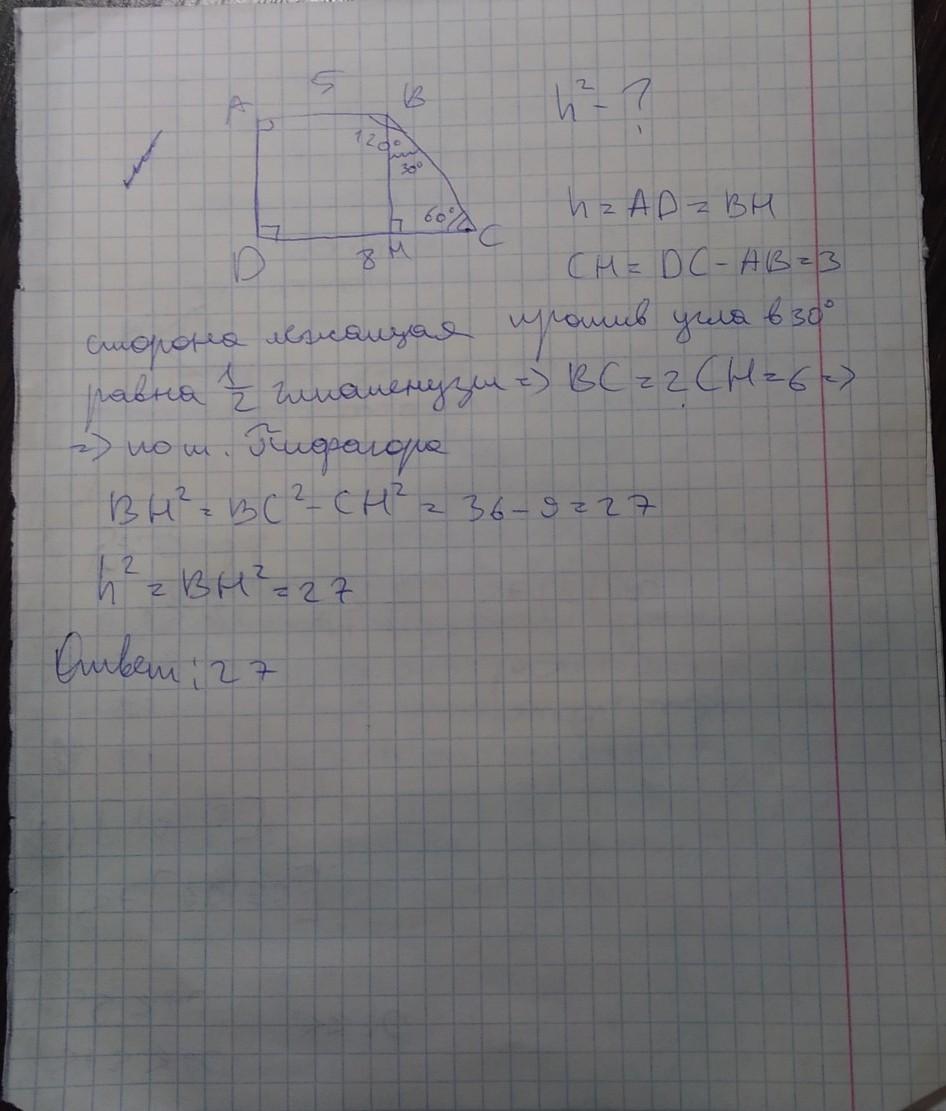 5
A B
120°
30°
60°
D 8 H C
h² - ?
h = AD = BH
CH = DC - AB = 3
сторона лежащая против угла в 30°
равна 1/2 гипотенузы => BC = 2CH = 6 =>
=> по т. Пифагора
BH² = BC² - CH² = 36 - 9 = 27
h² = BH² = 27
Ответ: 27